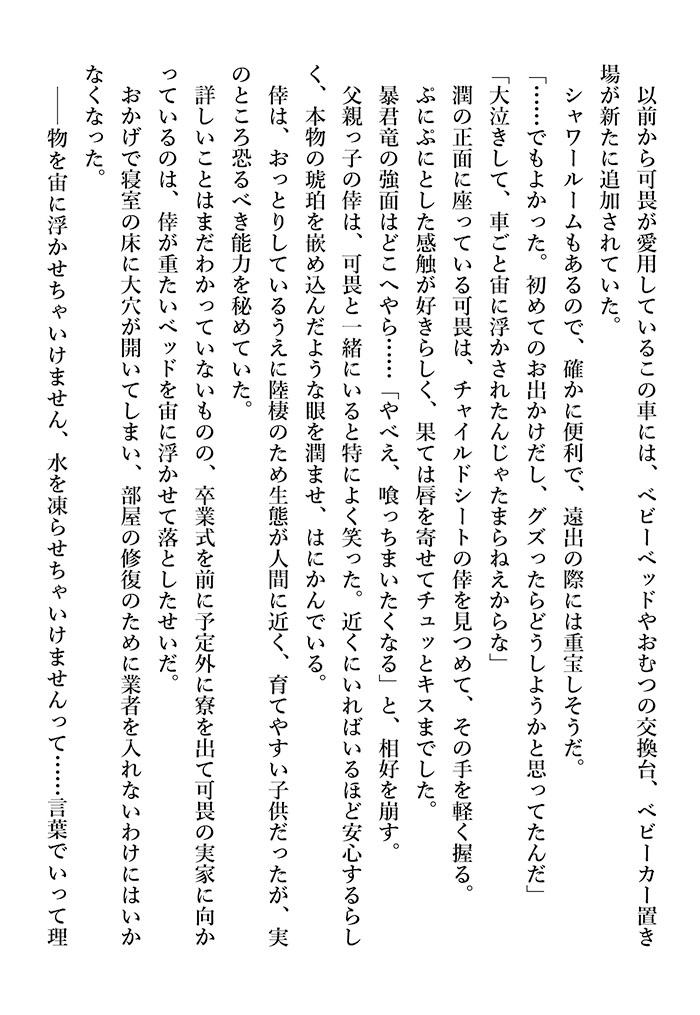 以前から可畏が愛用しているこの車には、ベビーベッドやおむつの交換台、ベビーカー置き
場が新たに追加されていた。
　シャワールームもあるので、確かに便利で、遠出の際には重宝しそうだ。
「……でもよかった。初めてのお出かけだし、グズったらどうしようかと思ってたんだ」
「大泣きして、車ごと宙に浮かされたんじゃたまらねえからな」
　潤の正面に座っている可畏は、チャイルドシートの倖を見つめて、その手を軽く握る。
　ぷにぷにとした感触が好きらしく、果ては唇を寄せてチュッとキスまでした。
　暴君竜の強面はどこへやら……「やべえ、喰っちまいたくなる」と、相好を崩す。
　父親っ子の倖は、可畏と一緒にいると特によく笑った。近くにいればいるほど安心するらし
く、本物の琥珀を嵌め込んだような眼を潤ませ、はにかんでいる。
　倖は、おっとりしているうえに陸棲のため生態が人間に近く、育てやすい子供だったが、実
のところ恐るべき能力を秘めていた。
　詳しいことはまだわかっていないものの、卒業式を前に予定外に寮を出て可畏の実家に向か
っているのは、倖が重たいベッドを宙に浮かせて落としたせいだ。
　おかげで寝室の床に大穴が開いてしまい、部屋の修復のために業者を入れないわけにはいか
なくなった。
　――物を宙に浮かせちゃいけません、水を凍らせちゃいけませんって……言葉でいって理